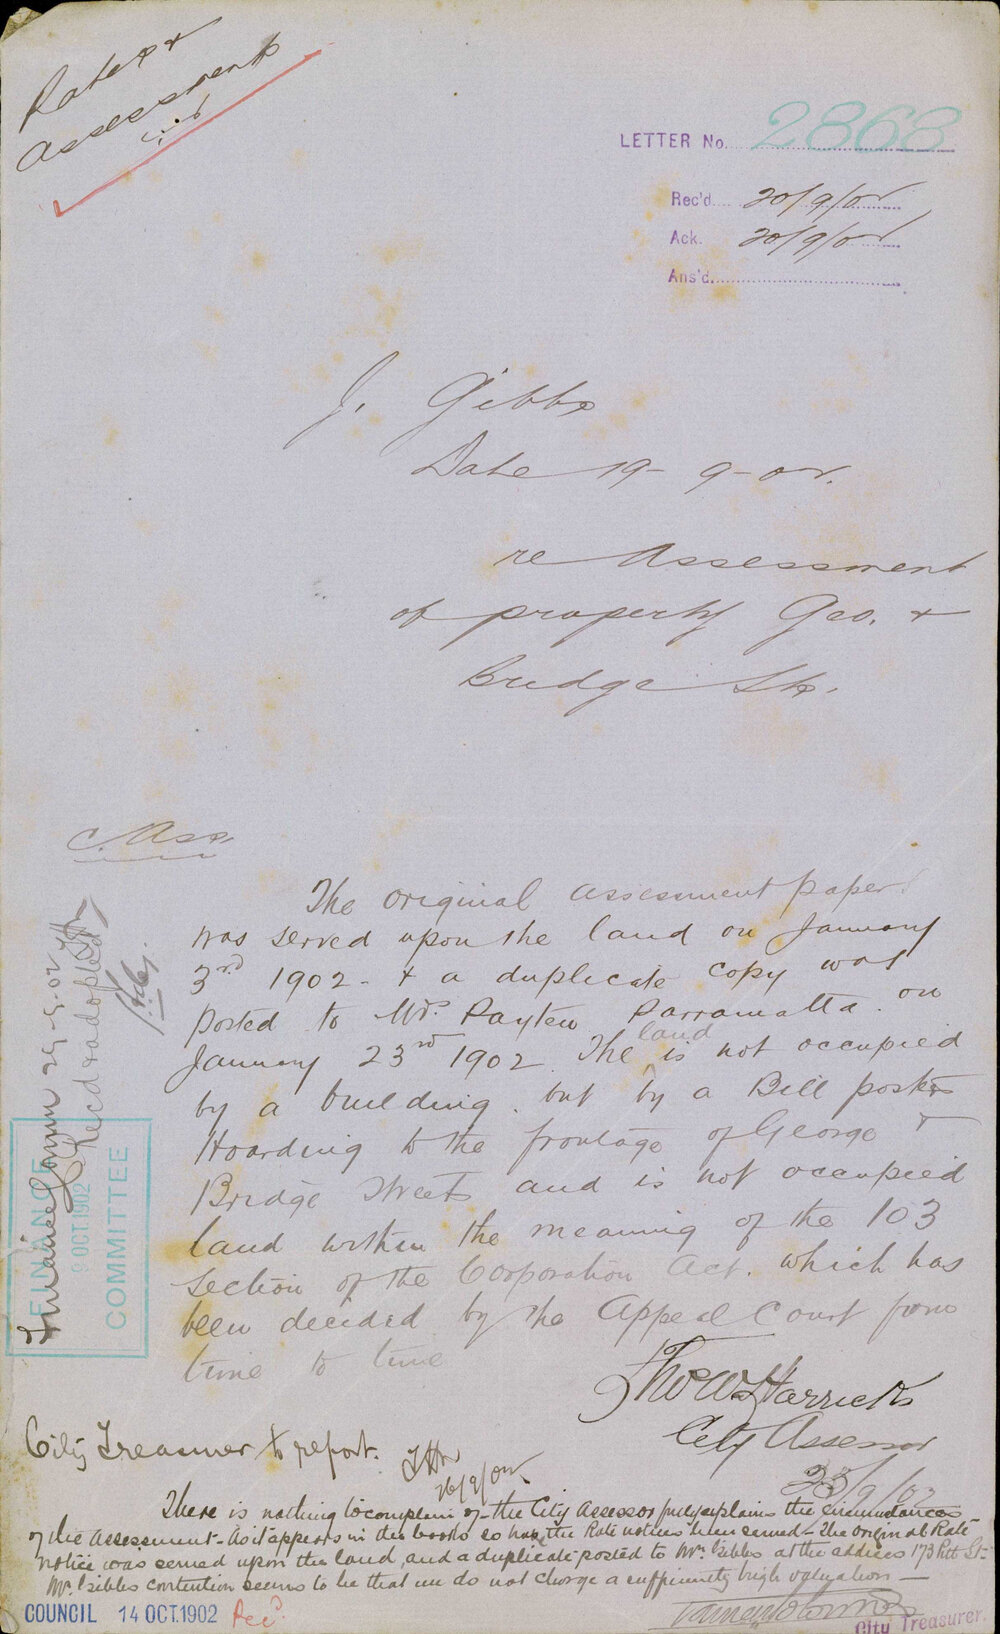 Rates &
Assessments
LETTER No. 2868
Rec'd. 20/9/02
Ack. 20/9/02
Ans'd.
J. Gibbs
Date 19-9-02.
re Assessment
of property Geo. &
Bridge Sts.
C. Ass.
The original assessment paper
was served upon the land on January
3rd 1902 - & a duplicate copy was
posted to Mrs. Payten Parramatta on
January 23rd 1902. The land is not occupied
by a building. but by a Bill posters
Hoarding to the frontage of George &
Bridge Streets and is not occupied
land within the meaning of the 103
section of the Corporation Act. which has
been decided by the Appeal Court from
time to time
Thos W Garrick
City Assessor
23/9/02
City Treasurer to report.
26/9/02.
There is nothing to complain of - the City Assessor fully explains the circumstances
of the Assessment - As it appears in the books so have the Rate notices been served - The original Rate
notice was served upon the land, and a duplicate posted to Mr. Gibbs at the address 173 Pitt St -
Mr. Gibbs contention seems to be that we do not charge a sufficiently high valuation -
City Treasurer.
COUNCIL 14 OCT. 1902 Recd.
FINANCE
9 OCT. 1902
COMMITTEE
Finance Comm 29-9-02
Recd & adopted